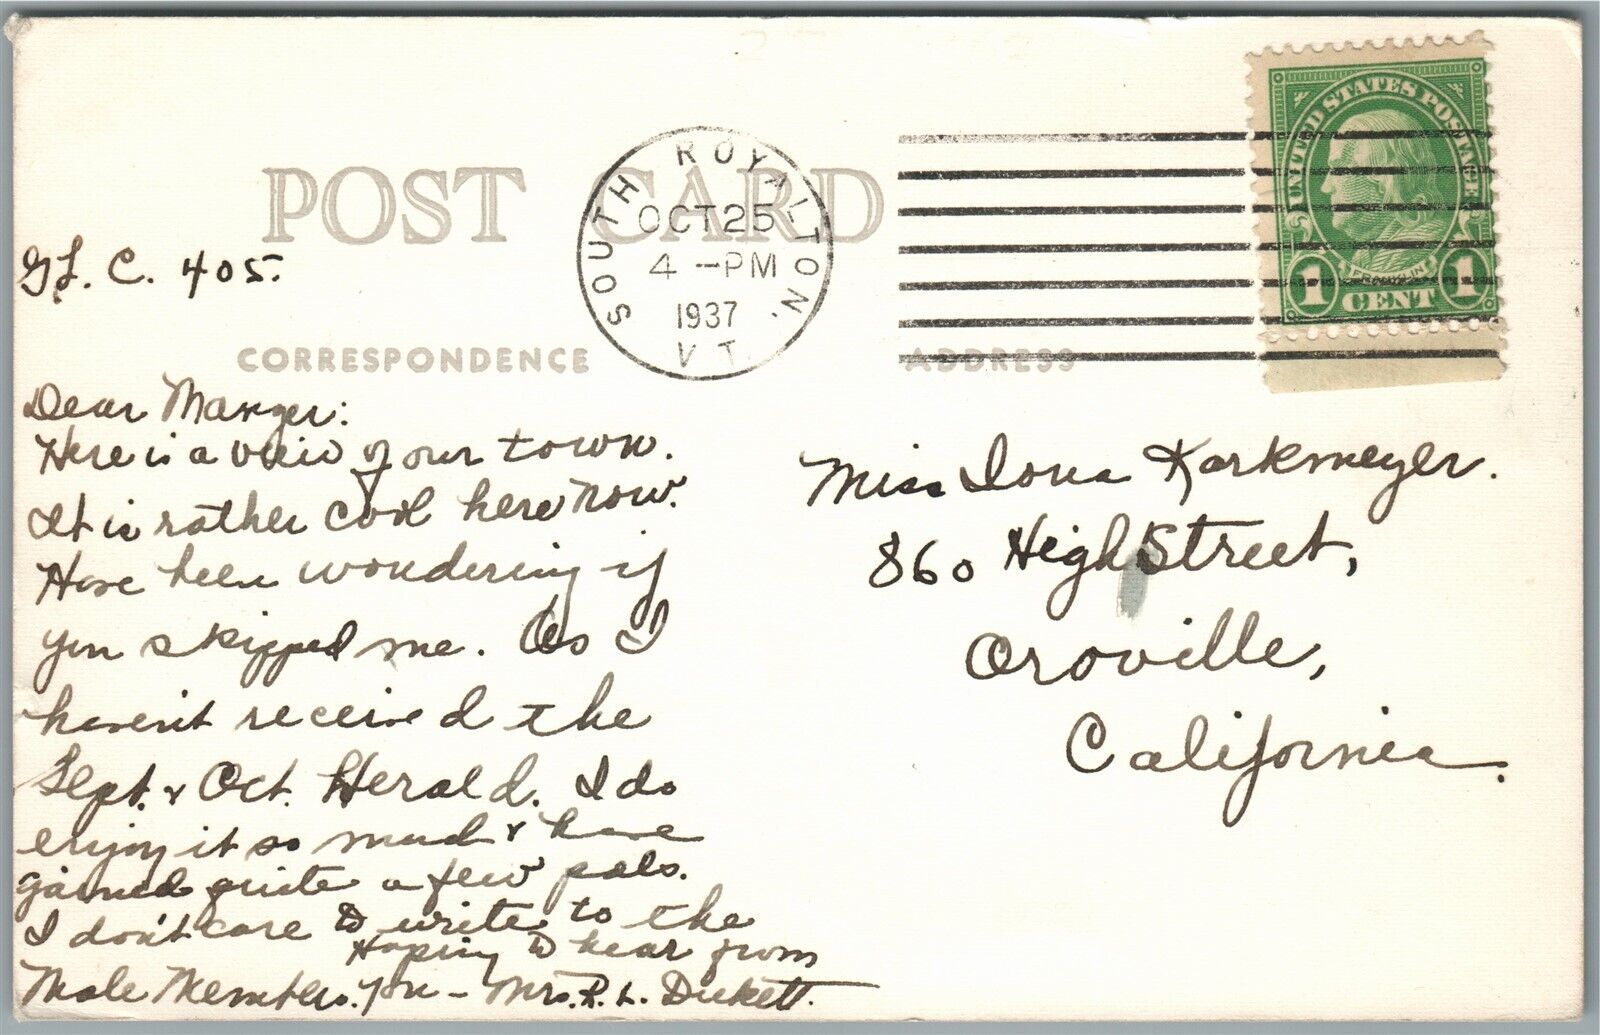 POST CARD
SOUTH ROYALTON.
OCT 25
4 -PM
1937
VT.
UNITED STATES POSTAGE
FRANKLIN
1 CENT 1
G.L.C. 405.
CORRESPONDENCE
ADDRESS
Dear Manger:
Here is a view of our town.
It is rather cool here now.
Have been wondering if
you skipped me. As I
haven't received the
Sept. & Oct. Herald. I do
enjoy it so much & have
gained quite a few pals.
I don't care to write to the
Male Members.
Hoping to hear from
you - Mrs. R. L. Duckett.
Miss Iona Karkmeyer.
860 High Street,
Oroville,
California.